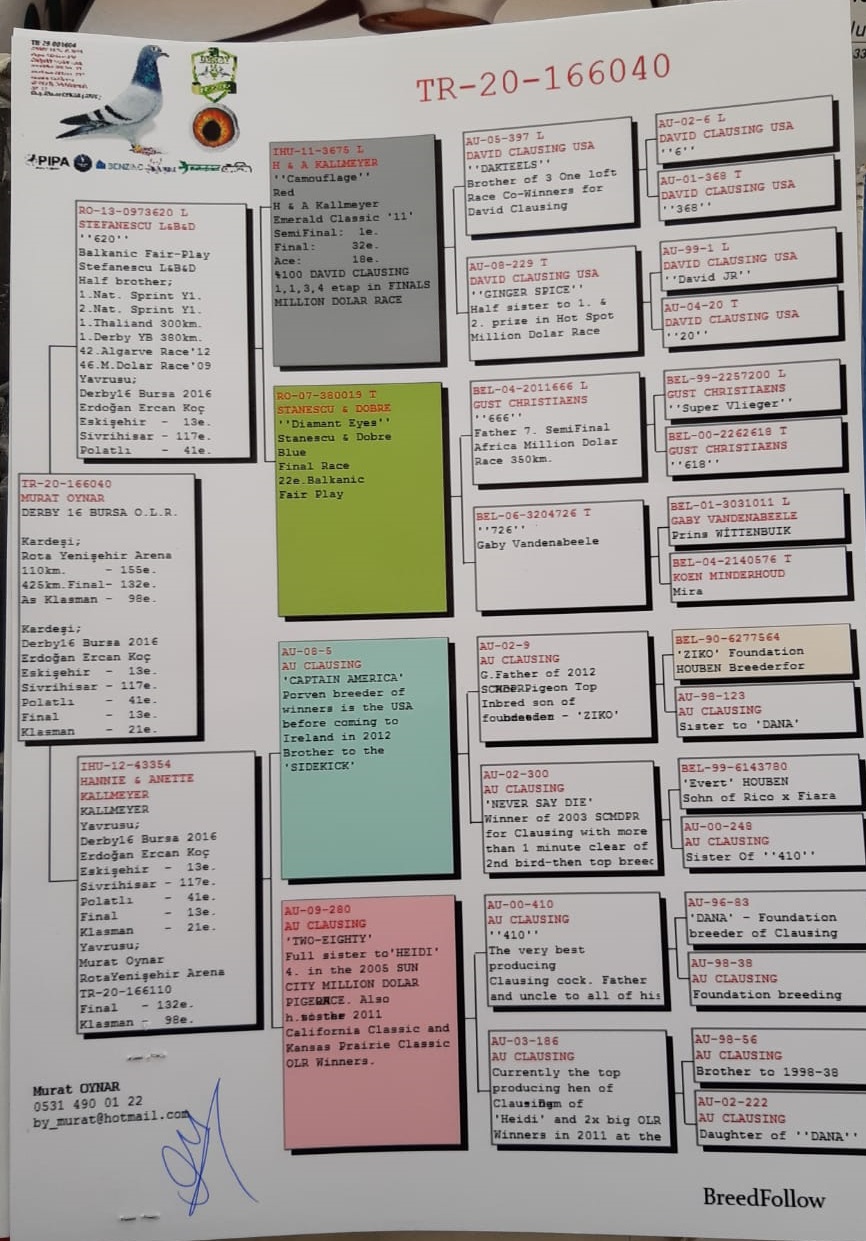 TR-20-166040
PIPA
BENZING
RO-13-0973620 L
STEFANESCU L&B&D
''620''
Balkanic Fair-Play
Stefanescu L&B&D
Half brother;
1.Nat. Sprint Y1.
2.Nat. Sprint Y1.
1.Thaliand 300km.
1.Derby YB 380km.
42.Algarve Race'12
46.M.Dolar Race'09
Yavrusu;
Derby16 Bursa 2016
Erdoğan Ercan Koç
Eskişehir - 13e.
Sivrihisar - 117e.
Polatlı - 41e.
TR-20-166040
MURAT OYNAR
DERBY 16 BURSA O.L.R.
Kardeşi;
Rota Yenişehir Arena
110km. - 155e.
425km.Final- 132e.
As Klasman - 98e.
Kardeşi;
Derby16 Bursa 2016
Erdoğan Ercan Koç
Eskişehir - 13e.
Sivrihisar - 117e.
Polatlı - 41e.
Final - 13e.
Klasman - 21e.
IHU-12-43354
HANNIE & ANETTE
KALLMEYER
KALLMEYER
Yavrusu;
Derby16 Bursa 2016
Erdoğan Ercan Koç
Eskişehir - 13e.
Sivrihisar - 117e.
Polatlı - 41e.
Final - 13e.
Klasman - 21e.
Yavrusu;
Murat Oynar
RotaYenişehir Arena
TR-20-166110
Final - 132e.
Klasman - 98e.
IHU-11-3675 L
H & A KALLMEYER
''Camouflage''
Red
H & A Kallmeyer
Emerald Classic '11'
SemiFinal: 1e.
Final: 32e.
Ace: 18e.
%100 DAVID CLAUSING
1,1,3,4 etap in FINALS
MILLION DOLAR RACE
RO-07-380019 T
STANESCU & DOBRE
''Diamant Eyes''
Stanescu & Dobre
Blue
Final Race
22e.Balkanic
Fair Play
AU-08-5
AU CLAUSING
'CAPTAIN AMERICA'
Porven breeder of
winners is the USA
before coming to
Ireland in 2012
Brother to the
'SIDEKICK'
AU-09-280
AU CLAUSING
'TWO-EIGHTY'
Full sister to'HEIDI'
4. in the 2005 SUN
CITY MILLION DOLAR
Also
2011
California Classic and
Kansas Prairie Classic
OLR Winners.
AU-05-397 L
DAVID CLAUSING USA
''DAKTEELS''
Brother of 3 One loft
Race Co-Winners for
David Clausing
AU-08-229 T
DAVID CLAUSING USA
''GINGER SPICE''
Half sister to 1. &
2. prize in Hot Spot
Million Dolar Race
BEL-04-2011666 L
GUST CHRISTIAENS
''666''
Father 7. SemiFinal
Africa Million Dolar
Race 350km.
BEL-06-3204726 T
''726''
Gaby Vandenabeele
AU-02-9
AU CLAUSING
G.Father of 2012
Pigeon Top
Inbred son of
- 'ZIKO'
AU-02-300
AU CLAUSING
'NEVER SAY DIE'
Winner of 2003 SCMDPR
for Clausing with more
than 1 minute clear of
2nd bird-then top breec
AU-00-410
AU CLAUSING
''410''
The very best
producing
Clausing cock. Father
and uncle to all of his
AU-03-186
AU CLAUSING
Currently the top
producing hen of
of
'Heidi' and 2x big OLR
Winners in 2011 at the
AU-02-6 L
DAVID CLAUSING USA
''6''
AU-01-368 T
DAVID CLAUSING USA
''368''
AU-99-1 L
DAVID CLAUSING USA
''David JR''
AU-04-20 T
DAVID CLAUSING USA
''20''
BEL-99-2257200 L
GUST CHRISTIAENS
''Super Vlieger''
BEL-00-2262618 T
GUST CHRISTIAENS
''618''
BEL-01-3031011 L
GABY VANDENABEELE
Prins WİTTENBUIK
BEL-04-2140576 T
KOEN MINDERHOUD
Mira
BEL-90-6277564
'ZIKO' Foundation
HOUBEN Breederfor
AU-98-123
AU CLAUSING
Sister to 'DANA'
BEL-99-6143780
'Evert' HOUBEN
Sohn of Rico x Fiara
AU-00-248
AU CLAUSING
Sister Of ''410''
AU-96-83
'DANA' - Foundation
breeder of Clausing
AU-98-38
AU CLAUSING
Foundation breeding
AU-98-56
AU CLAUSING
Brother to 1998-38
AU-02-222
AU CLAUSING
Daughter of ''DANA''
Murat OYNAR
0531 490 01 22
by_murat@hotmail.com
BreedFollow